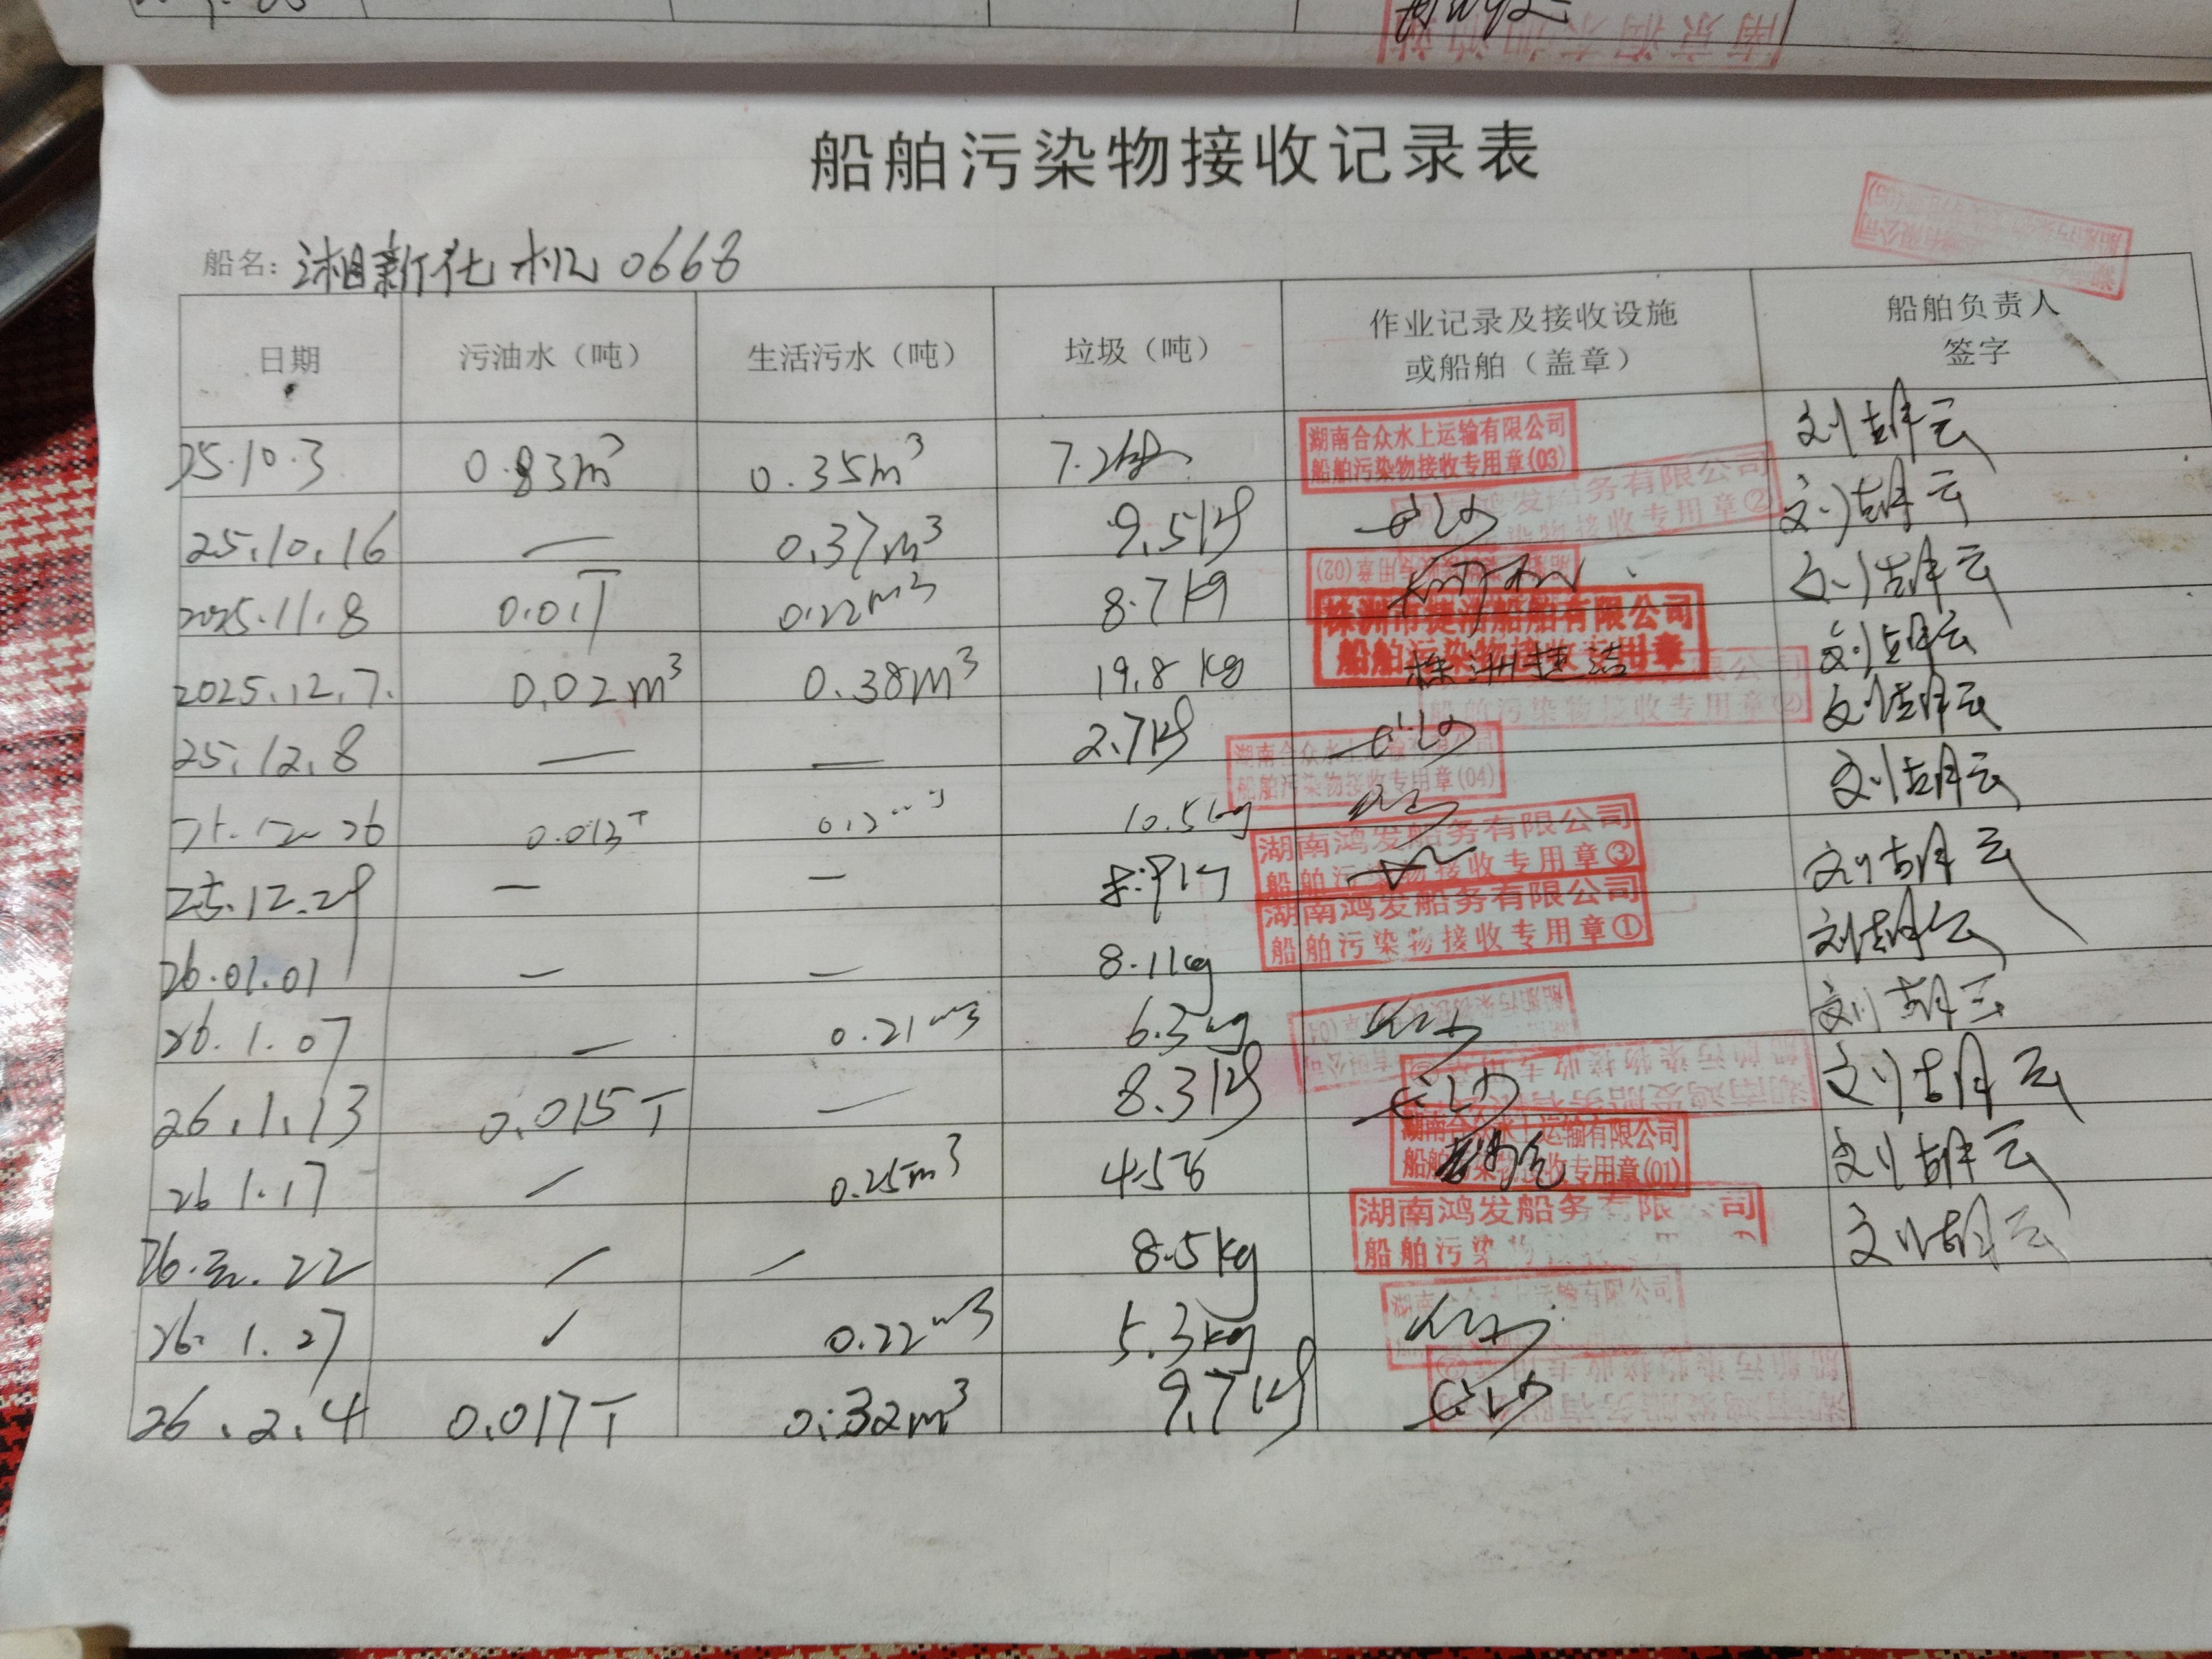 船舶污染物接收记录表
船名: 湘新化机0668
日期 污油水（吨） 生活污水（吨） 垃圾（吨） 作业记录及接收设施或船舶（盖章） 船舶负责人签字
25.10.3 0.83m³ 0.35m³ 7.2kg 湖南合众水上运输有限公司 船舶污染物接收专用章(03) 刘胡云
25.10.16 — 0.37m³ 9.5kg 鸿发船务有限公司 染物接收专用章② 刘胡云
2025.11.8 0.01T 0.22m³ 8.7kg 专用章(02) 刘胡云
2025.12.7. 0.02m³ 0.38m³ 19.8kg 株洲市捷洁船舶有限公司 船舶污染物接收专用章 株洲捷洁 刘胡云
25.12.8 — — 2.7kg 船舶污染物接收专用章② 刘胡云
25.12.26 0.013T 10.5kg 湖南合众水上运输有限公司 船舶污染物接收专用章(04) 刘胡云
25.12.29 — — 8.9kg 湖南鸿发船务有限公司 船舶污染物接收专用章③ 刘胡云
26.01.01 — — 8.1kg 湖南鸿发船务有限公司 船舶污染物接收专用章① 刘胡云
26.1.07 — 0.21m³ 6.3kg 刘胡云
26.1.13 0.015T — 8.3kg 湖南鸿发船务有限公司 船舶污染物接收专用章 刘胡云
26 1.17 / 0.25m³ 湖南合众水上运输有限公司 船舶污染物接收专用章(01) 刘胡云
26. .22 / / 8.5kg 湖南鸿发船务有限 司 船舶污染 刘胡云
26. 1.27 / 0.22m³ 5.3kg
26.2.4 0.017T 0.32m³ 9.7kg